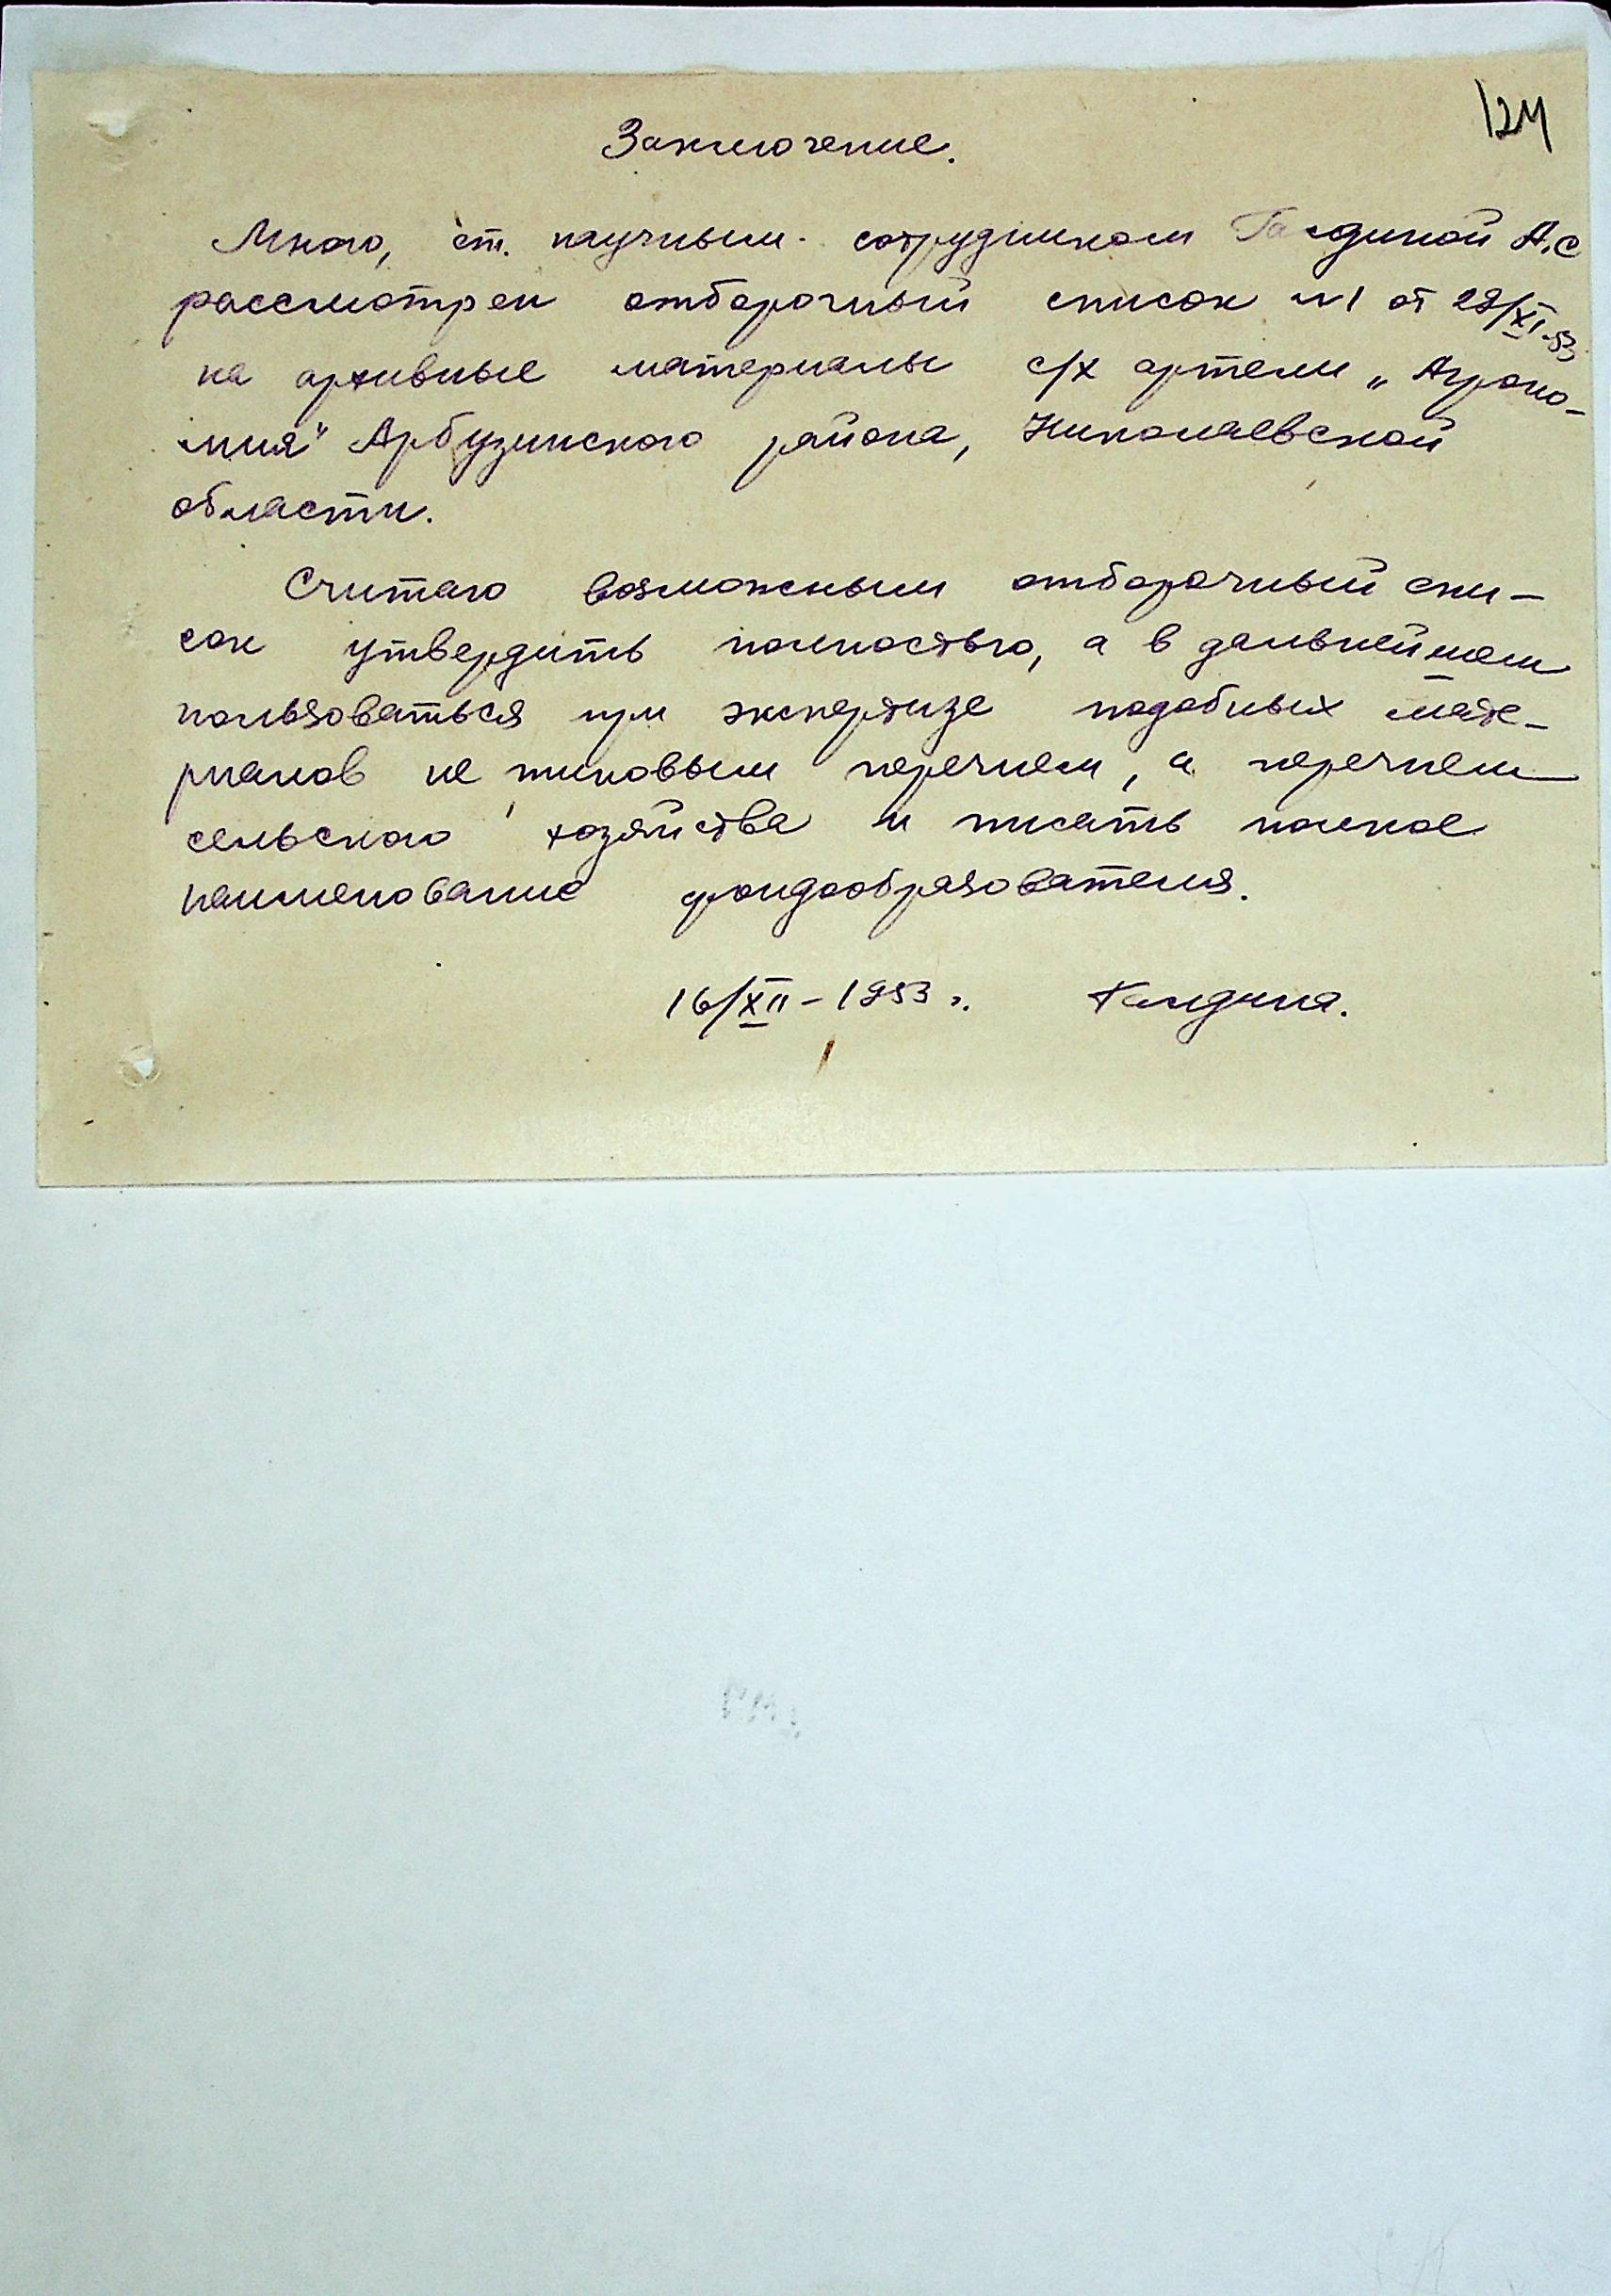 124
Заключение.
Мною, ст. научным сотрудником Галдиной А.С
рассмотрен отборочный список №1 от 28/XI-53
на архивные материалы с/х артели „Агроно-
мия" Арбузинского района, Николаевской
области.
Считаю возможным отборочный спи-
сок утвердить полностью, а в дальнейшем
пользоваться при экспертизе подобных мате-
риалов не типовым перечнем, а перечнем
сельского хозяйства и писать полное
наименование фондообразователя.
16/XII-1953 г. Галдина.